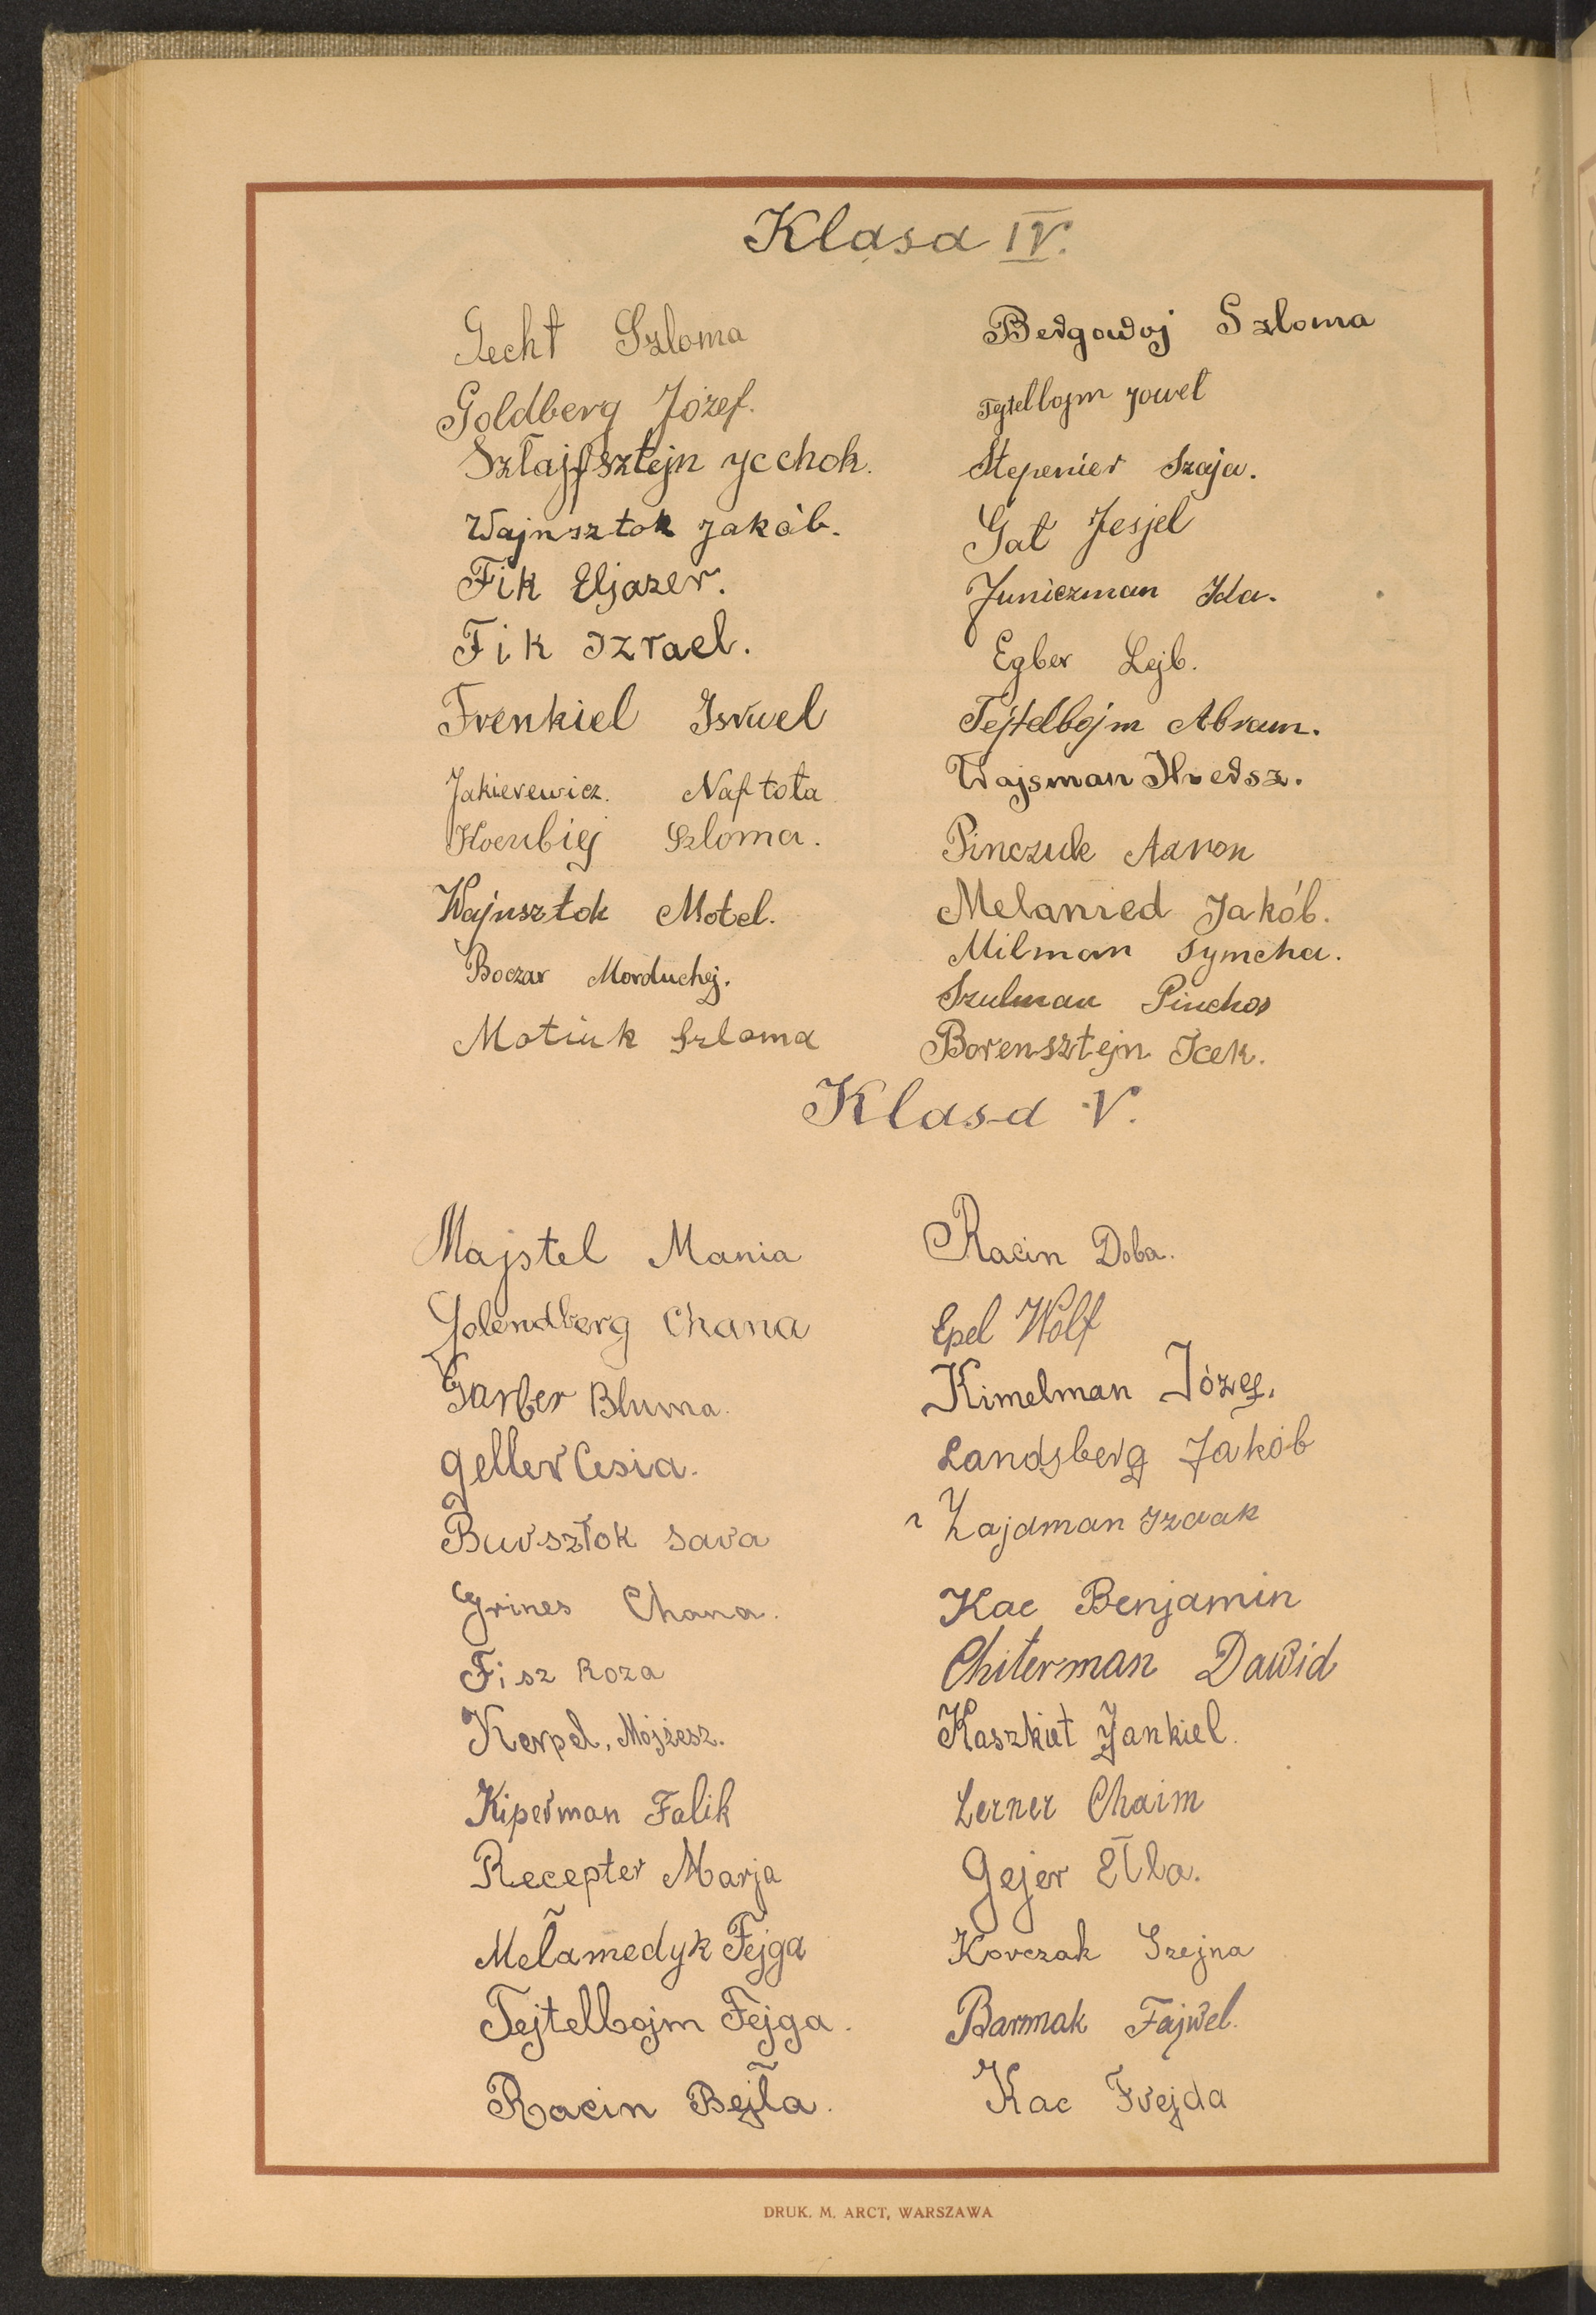 Klasa IV.
Hecht Szloma
Goldberg Józef.
Szłajfsztejn ycchok.
Wajnsztok Jakób.
Fik Eljazer.
Fik Izrael.
Frenkiel Israel
Jakierewicz. Naftoła
Koczubiej Szloma.
Wajnsztok Motel.
Boczar Morduchej.
Motiuk Szloma
Bedgowoj Szloma
Tejtelbojm Jowel
Stepenier Szaja.
Gat Jesjel
Juniczman Ida.
Egber Lejb.
Tejtelbojm Abram.
Wajsman Hersz.
Pinczuk Aaron
Melamed Jakób.
Milman Symcha.
Szulman Pinchos
Borensztejn Icek.
Klasa V.
Majstel Mania
Golendberg Chana
Garber Bluma.
Geller Cesia.
Bursztok Sara
Grines Chana.
Fisz Roza
Kerpel, Mojżesz.
Kiperman Falik
Recepter Marja
Mełamedyk Fejga
Tejtelbojm Fejga.
Racin Bejła.
Racin Doba.
Epel Wolf
Kimelman Józef.
Landsberg Jakób
Zajdman Izaak
Kac Benjamin
Chiterman Dawid
Kaszkiet Jankiel.
Lerner Chaim
Gejer Etla.
Korczak Szejna
Barmak Fajwel.
Kac Frejda
DRUK. M. ARCT, WARSZAWA